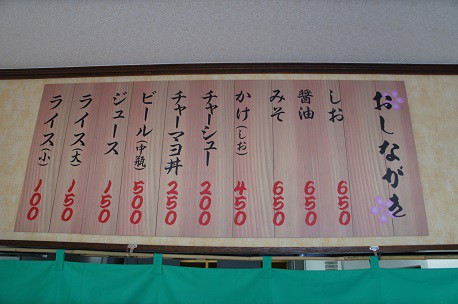 おしながき
しお 650
醤油 650
みそ 650
かけ(しお) 450
チャーシュー 200
チャーマヨ丼 250
ビール(中瓶) 500
ジュース 150
ライス(大) 150
ライス(小) 100